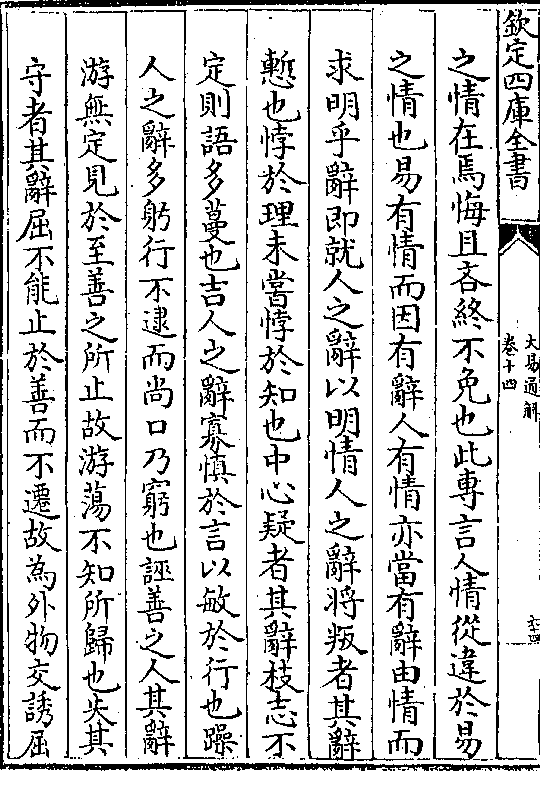 欽定四庫全書
大易通解
卷十四
之情在焉悔且吝終不免也此專言人情從違於易
之情也易有情而因有辭人有情亦當有辭由情而
求明乎辭即就人之辭以明情人之辭將叛者其辭
慙也悖於理未嘗悖於知也中心疑者其辭枝志不
定則語多蔓也吉人之辭寡慎於言以敏於行也躁
人之辭多躬行不逮而尚口乃窮也誣善之人其辭
游無定見於至善之所止故游蕩不知所歸也失其
守者其辭屈不能止於善而不遷故為外物交誘屈